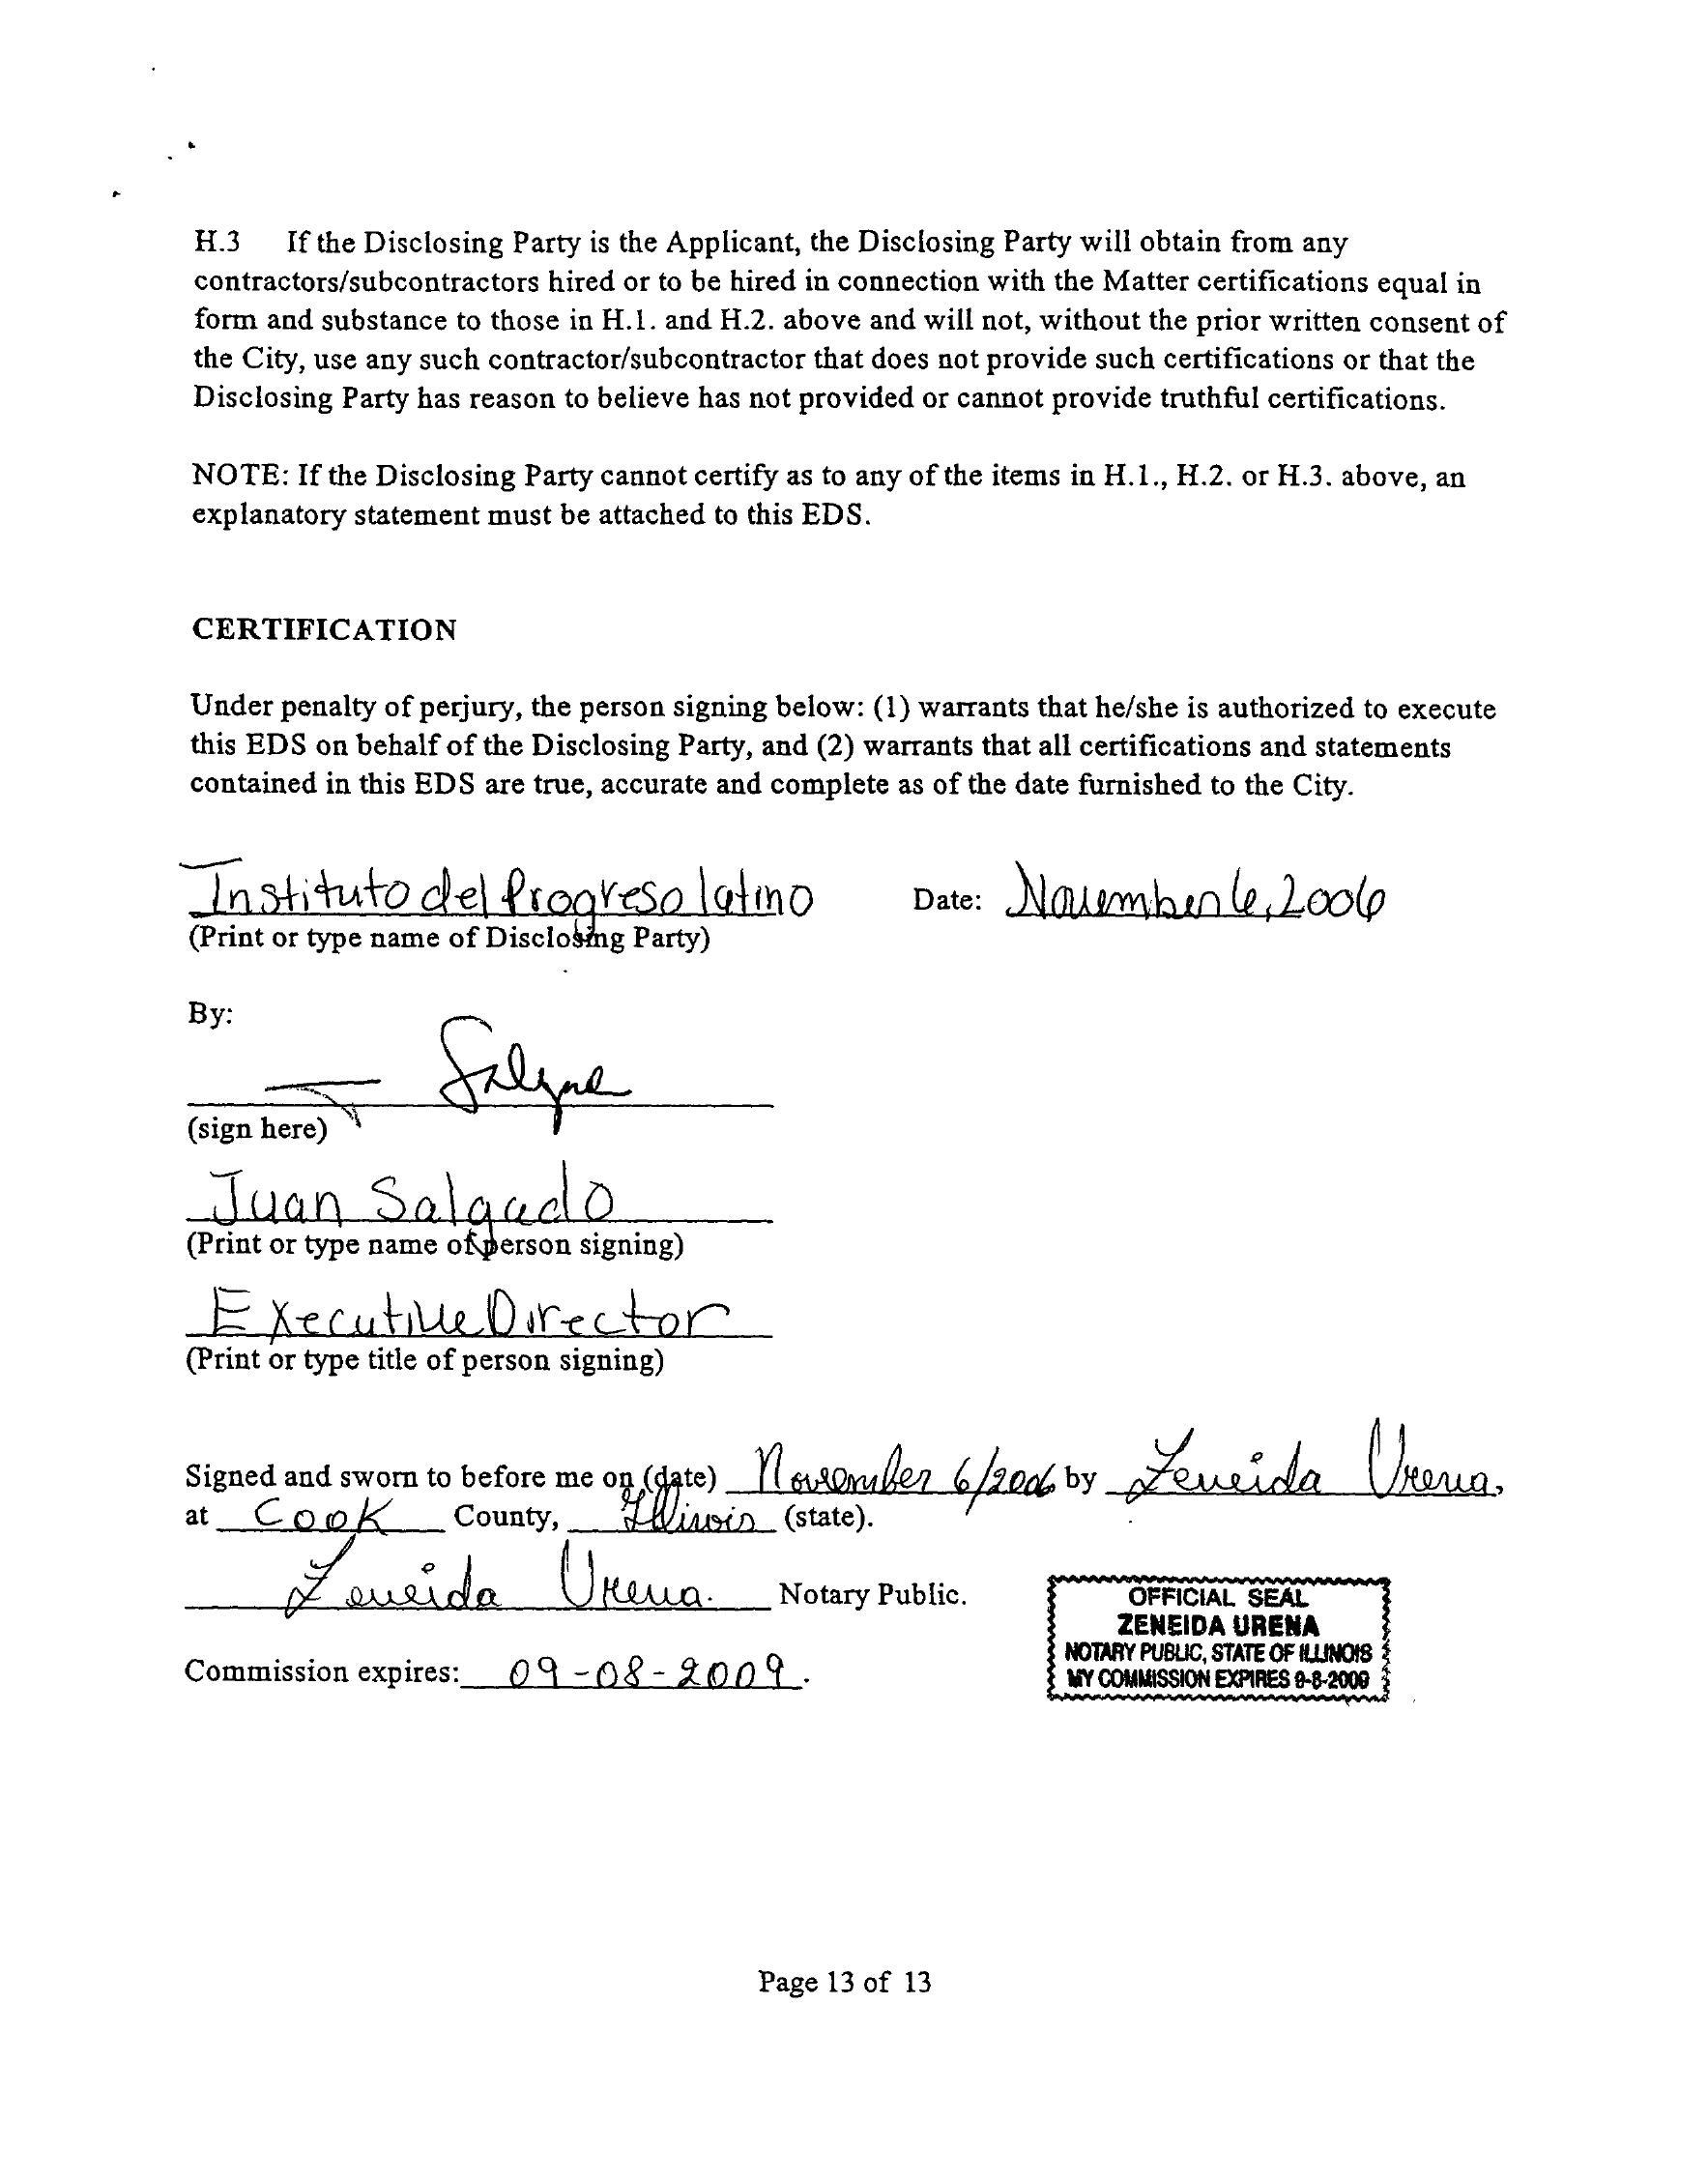 H.3 If the Disclosing Party is the Applicant, the Disclosing Party will obtain from any
contractors/subcontractors hired or to be hired in connection with the Matter certifications equal in
form and substance to those in H.1. and H.2. above and will not, without the prior written consent of
the City, use any such contractor/subcontractor that does not provide such certifications or that the
Disclosing Party has reason to believe has not provided or cannot provide truthful certifications.
NOTE: If the Disclosing Party cannot certify as to any of the items in H.1., H.2. or H.3. above, an
explanatory statement must be attached to this EDS.
CERTIFICATION
Under penalty of perjury, the person signing below: (1) warrants that he/she is authorized to execute
this EDS on behalf of the Disclosing Party, and (2) warrants that all certifications and statements
contained in this EDS are true, accurate and complete as of the date furnished to the City.
Instituto del Progreso latino Date: November 6, 2006
(Print or type name of Disclosing Party)
By:
(sign here)
Juan Salgado
(Print or type name of person signing)
Executive Director
(Print or type title of person signing)
Signed and sworn to before me on (date) November 6/2006 by Zeneida Urena,
at Cook County, Illinois (state).
Zeneida Urena. Notary Public.
OFFICIAL SEAL
ZENEIDA URENA
NOTARY PUBLIC, STATE OF ILLINOIS
MY COMMISSION EXPIRES 9-8-2009
Commission expires: 09-08-2009.
Page 13 of 13